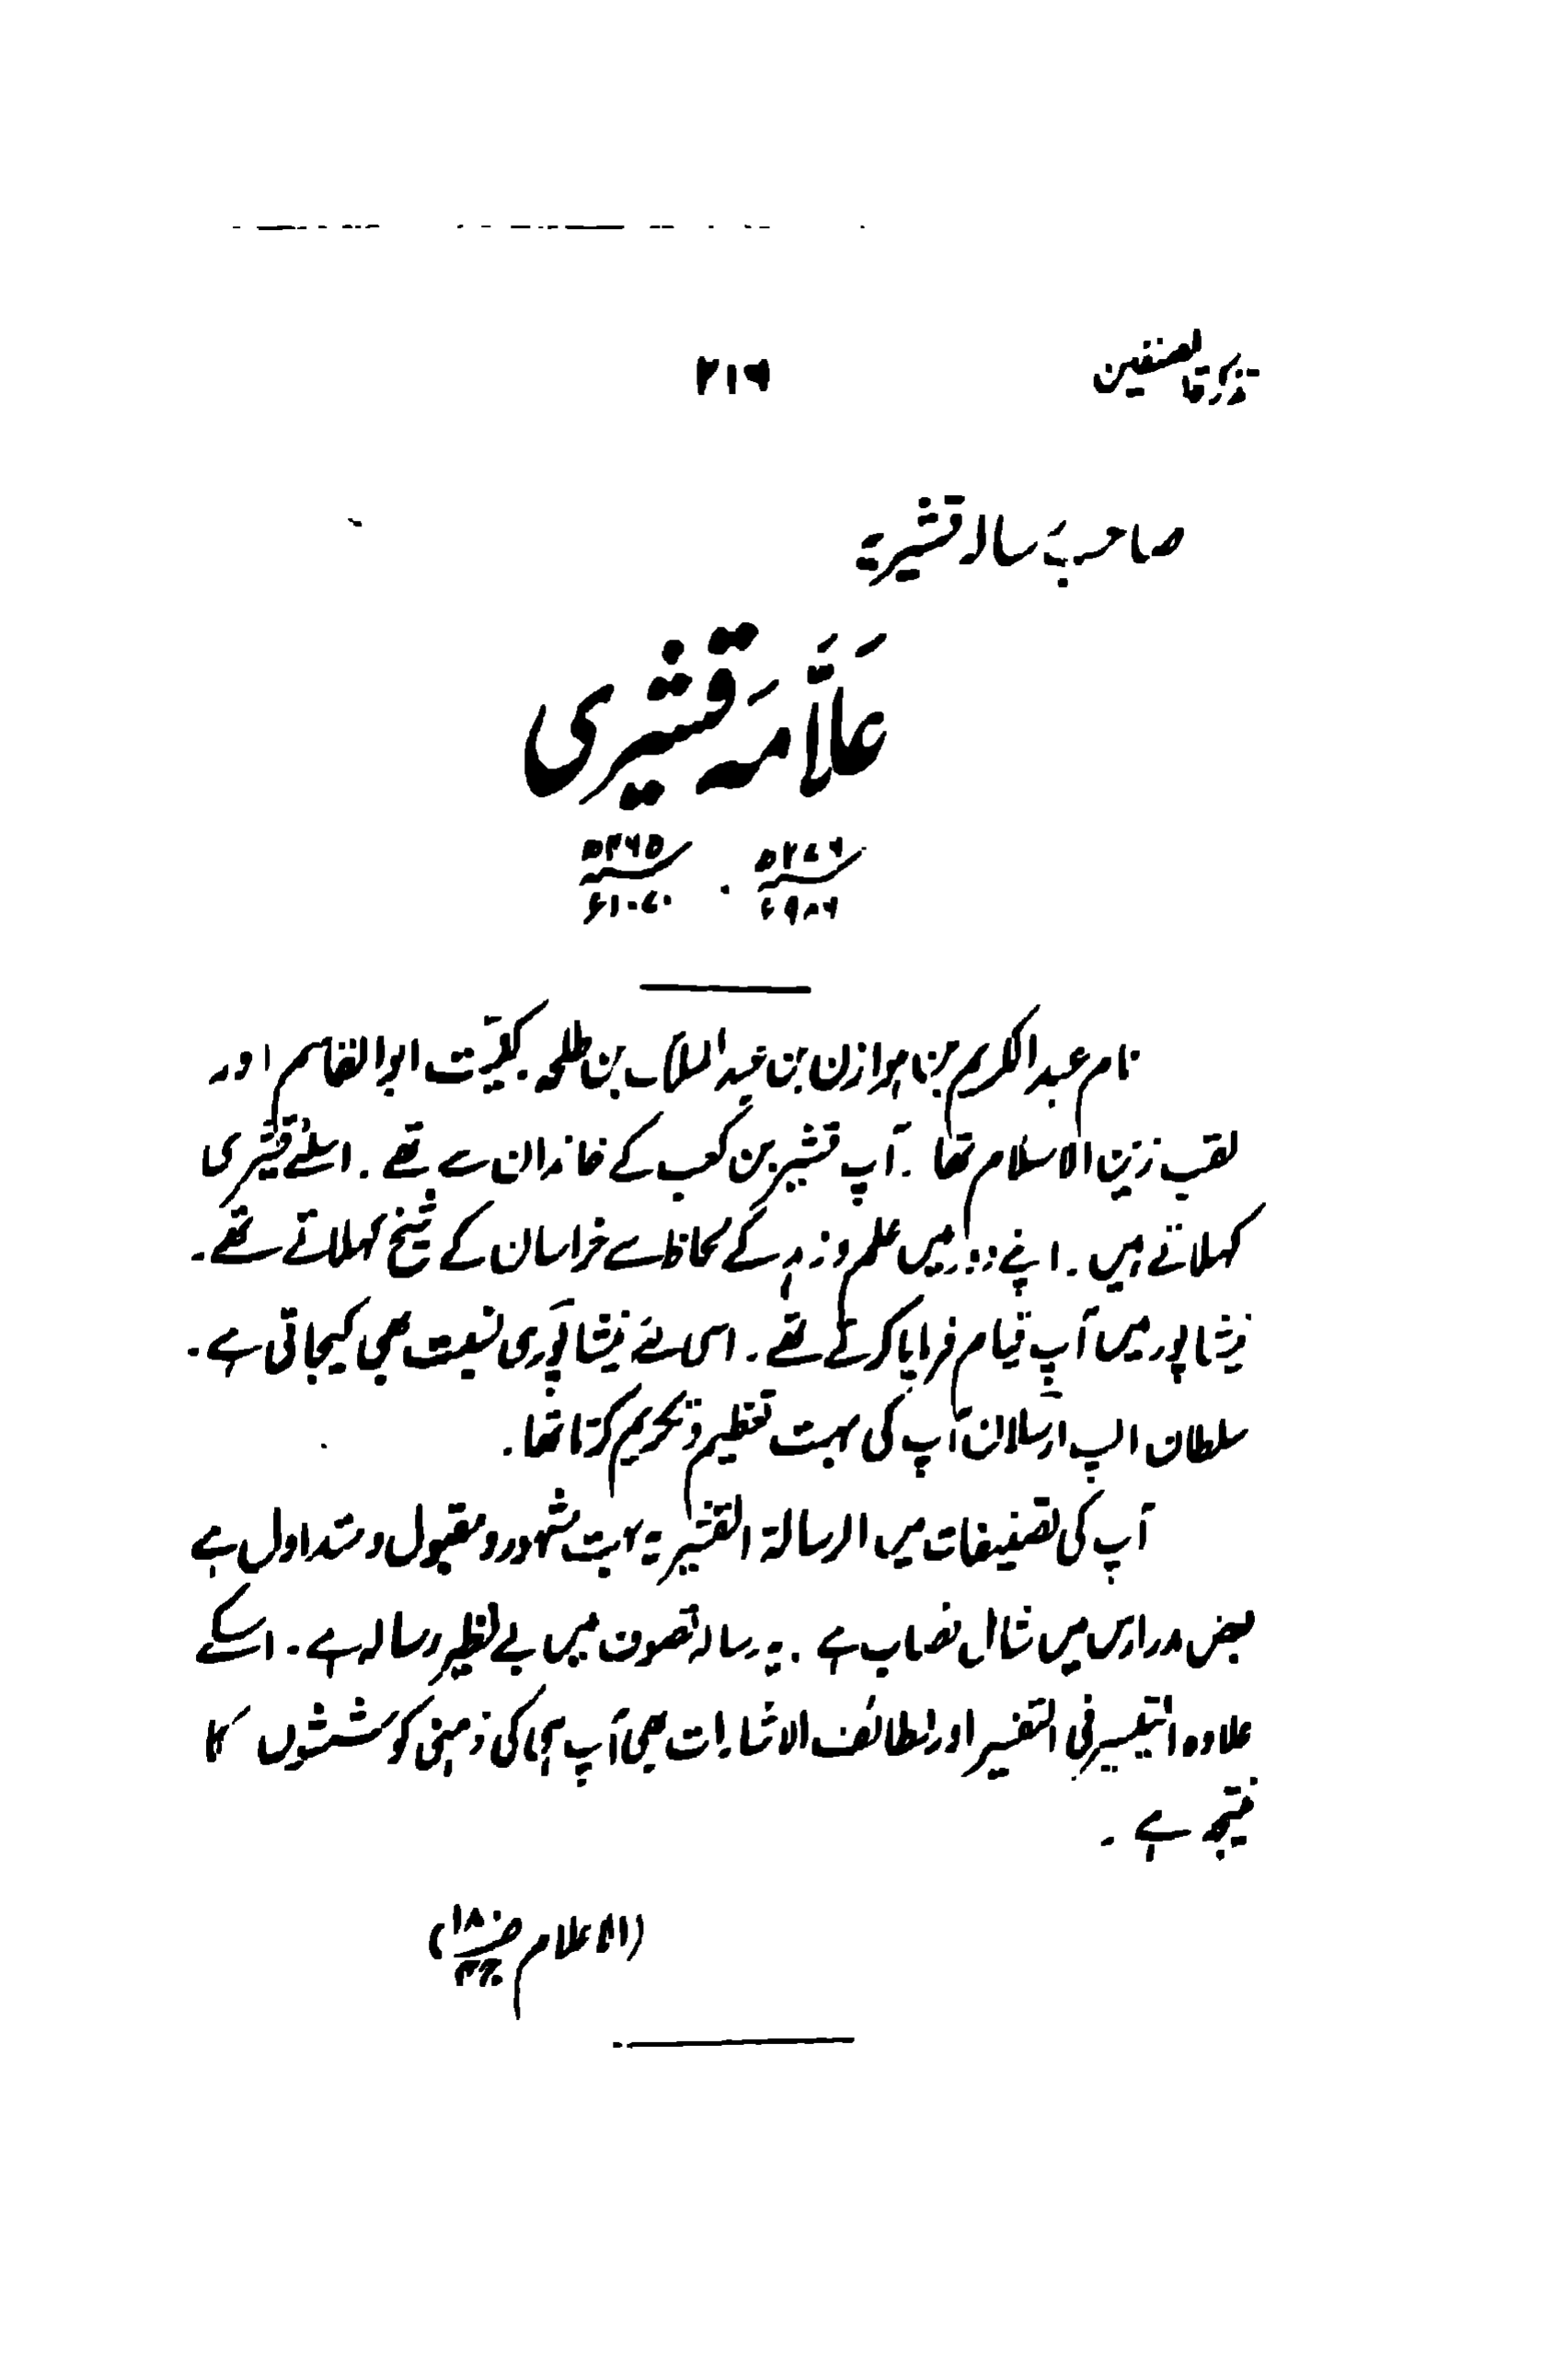 تذکرۃ المصنفین ۲۱۶
صاحب رسالہ قشیریہ
عَلَّامَہ قشیری
۳۷۶ھ ۴۶۵ھ
۹۸۶ء ۱۰۷۰ء
نام عبدالکریم بن ہوازن بن عبدالملک بن طلحہ۔ کنیّت ابوالقاسم اور
لقب زین الاسلام تھا ۔ آپ قشیر بن کعب کے خاندان سے تھے ۔ اسلئے قشیری
کہلاتے ہیں ۔ اپنے دور میں علم و زہد کے لحاظ سے خراسان کے شیخ کہلاتے تھے۔
نیشاپور میں آپ قیام فرمایا کرتے تھے ۔ اسی لئے نیشاپوری نسبت بھی کیجاتی ہے ۔
سلطان الپ ارسلان آپ کی بہت تعظیم و تکریم کرتا تھا ۔
آپ کی تصنیفات میں الرسالۃ القشیریہ بہت مشہور و مقبول و متداول ہے
بعض مدارس میں شامل نصاب ہے ۔ یہ رسالہ تصوف میں بے نظیر رسالہ ہے ۔ اسکے
علاوہ التیسیر فی التفسیر اور لطائف الاشارات بھی آپ ہی کی ذہنی کوششوں کا
نتیجہ ہے ۔
(الاعلام